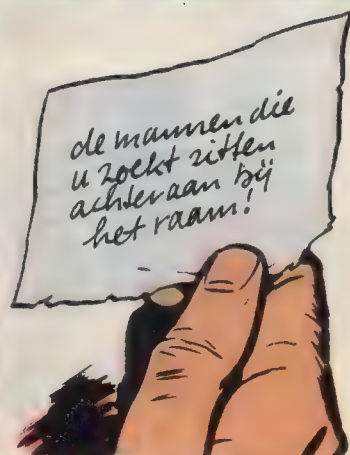 de mannen die
u zoekt zitten
achteraan bij
het raam!